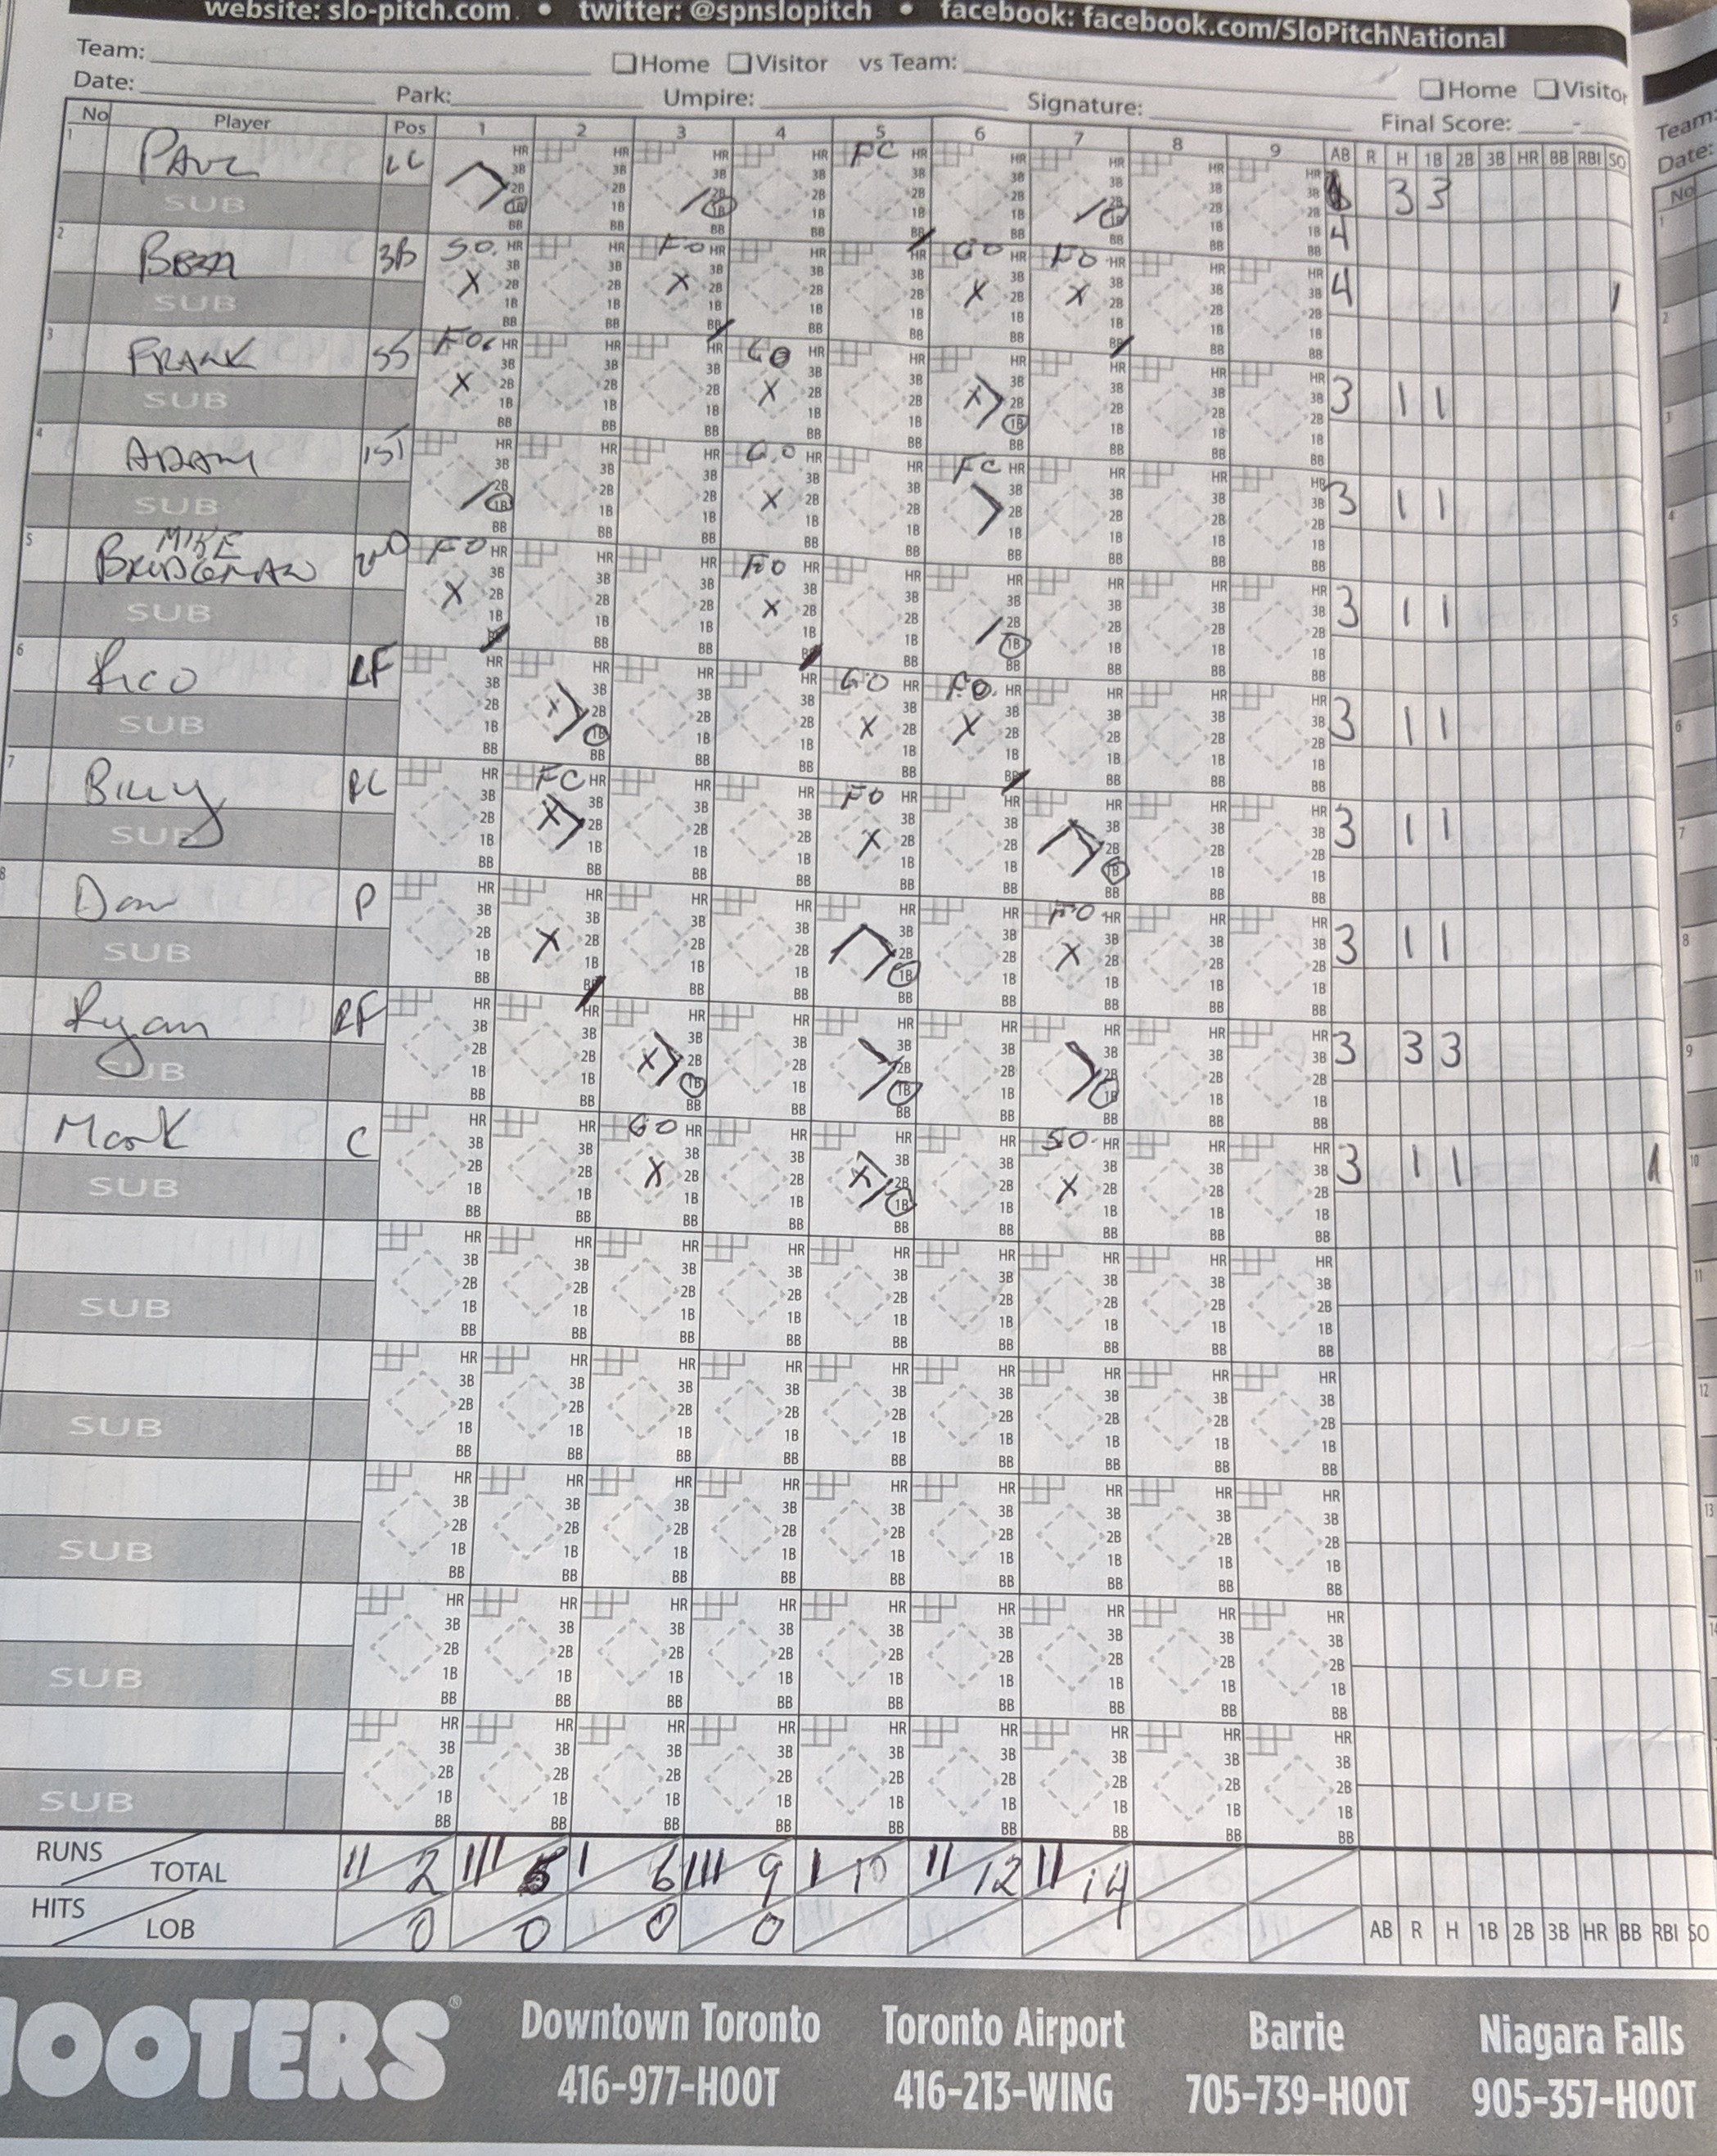 website: slo-pitch.com • twitter: @spnslopitch • facebook: facebook.com/SloPitchNational
Team: Home Visitor vs Team: Home Visitor
Date: Park: Umpire: Signature: Final Score: -
No Player Pos 1 2 3 4 5 6 7 8 9 AB R H 1B 2B 3B HR BB RBI SO
1 PAUL LC FC 4 3 3
SUB
2 BEN 3B S.O. FO GO FO 4 1
SUB
3 FRANK SS FO GO 3 1 1
SUB
4 ADAM 1ST G.O FC 3 1 1
SUB
5 MIKE BRIDGMAN 2ND FO FO 3 1 1
SUB
6 Rico LF GO FO 3 1 1
SUB
7 Billy RC FC FO 3 1 1
SUB
8 Dan P FO 3 1 1
SUB
Ryan RF 3 3 3
SUB
Mark C GO SO 3 1 1 1
SUB
SUB
SUB
SUB
SUB
SUB
RUNS TOTAL 2 5 6 9 10 12 14
HITS LOB 0 0 0 0 AB R H 1B 2B 3B HR BB RBI SO
HOOTERS®
Downtown Toronto Toronto Airport Barrie Niagara Falls
416-977-HOOT 416-213-WING 705-739-HOOT 905-357-HOOT